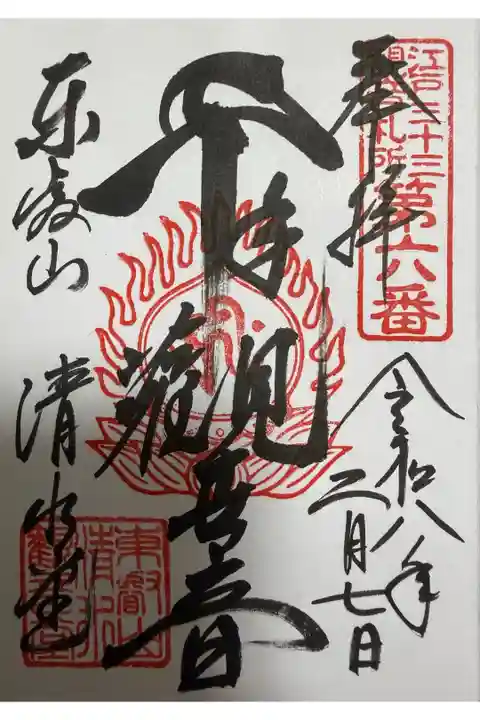 江戸三十三
観音札所
第六番
奉拝
令和八年
二月七日
千手
観世音
東叡山
清水堂
東叡山
清水
観音堂